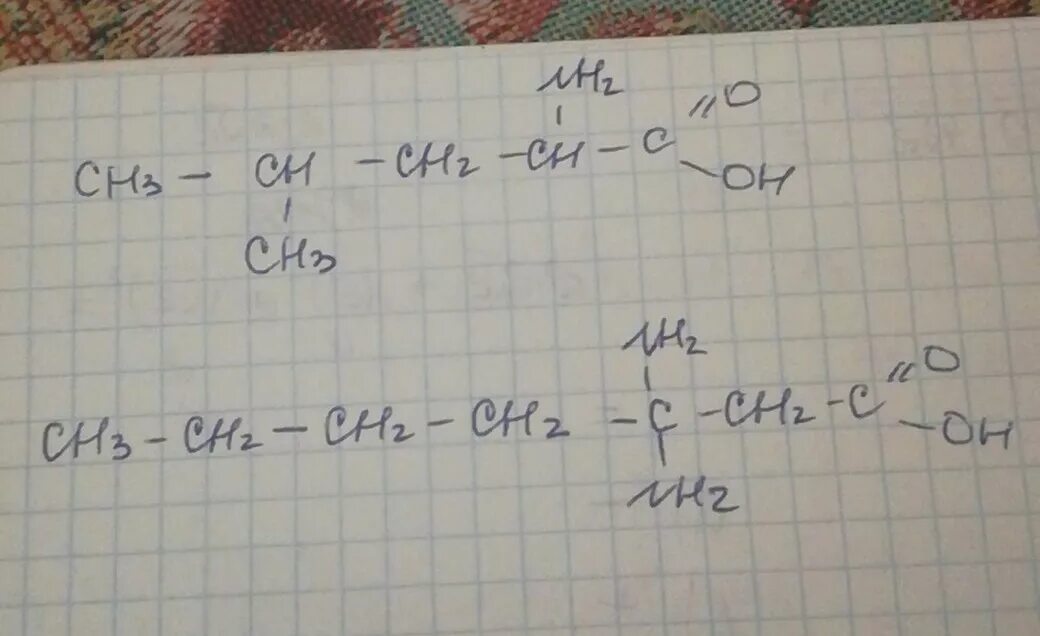 NH2
CH3 - CH - CH2 - CH - C = O
- OH
CH3
NH2
CH3 - CH2 - CH2 - CH2 - C - CH2 - C = O
- OH
NH2